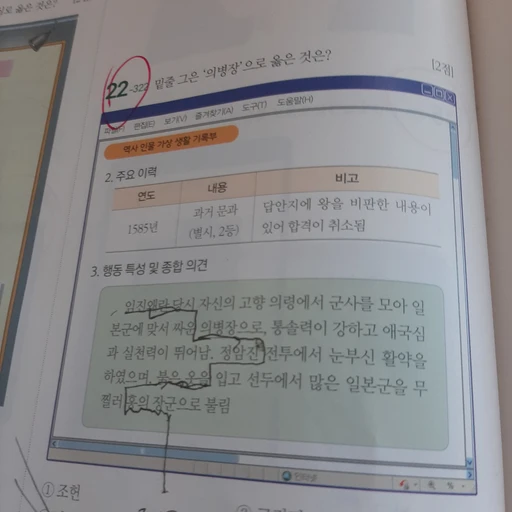 옳은 것은?
22
-322 밑줄 그은 '의병장'으로 옳은 것은?
[2점]
편집(E) 보기(V) 즐겨찾기(A) 도구(T) 도움말(H)
역사 인물 가상 생활 기록부
2. 주요 이력
연도 내용 비고
1585년 과거 문과 (별시, 2등) 답안지에 왕을 비판한 내용이 있어 합격이 취소됨
3. 행동 특성 및 종합 의견
임진왜란 당시 자신의 고향 의령에서 군사를 모아 일
본군에 맞서 싸운 의병장으로, 통솔력이 강하고 애국심
과 실천력이 뛰어남. 정암진 전투에서 눈부신 활약을
하였으며, 붉은 옷을 입고 선두에서 많은 일본군을 무
찔러 홍의 장군으로 불림
인터넷
① 조헌